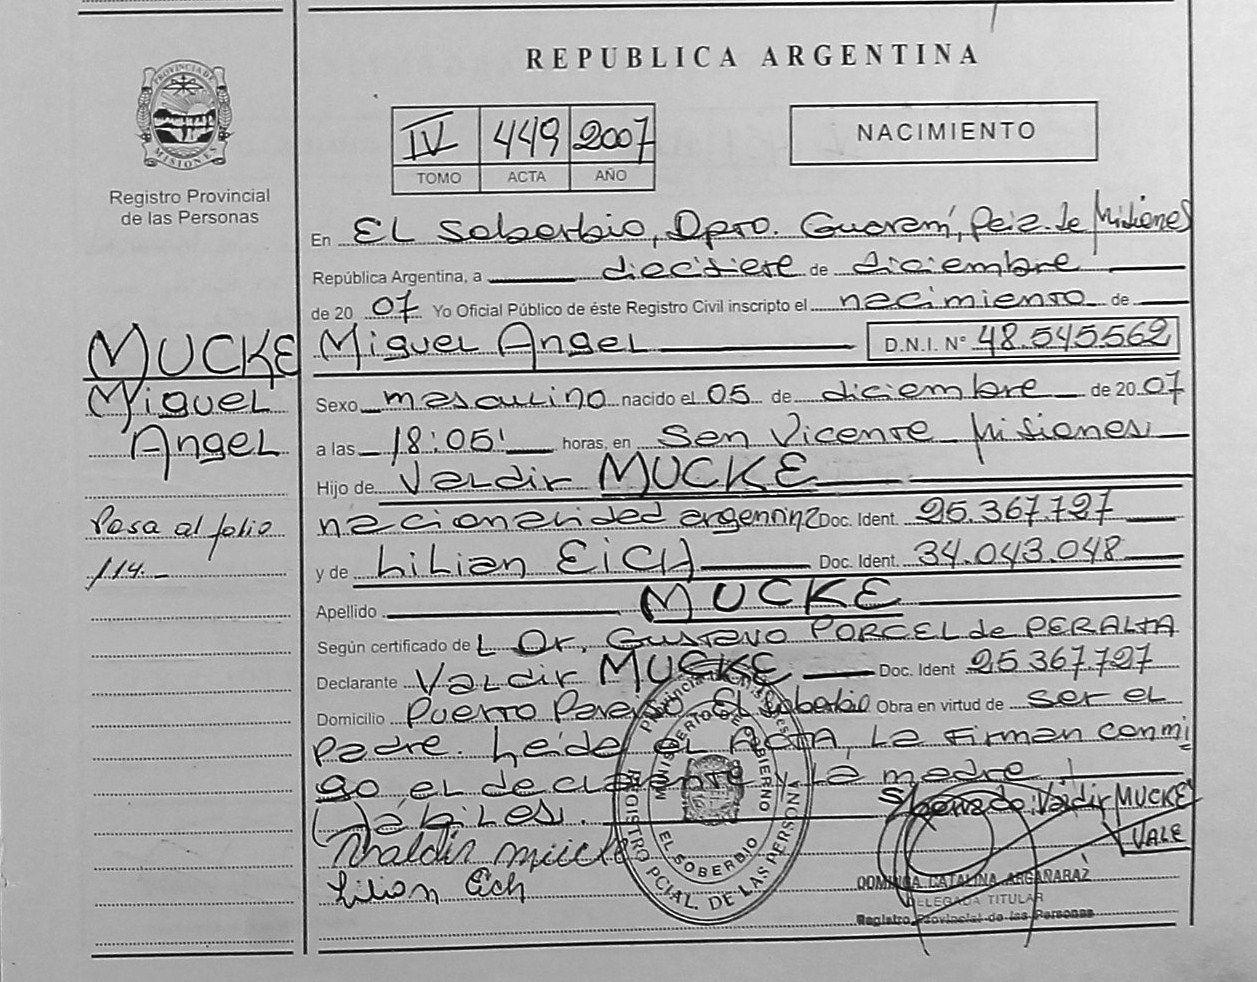 REPUBLICA ARGENTINA
PROVINCIA DE
MISIONES
Registro Provincial
de las Personas
IV 449 2007
TOMO ACTA AÑO
NACIMIENTO
En EL Soberbio, Dpto. Guaraní, Pcia. de Misiones
República Argentina, a diecisiete de diciembre
de 20 07 Yo Oficial Público de éste Registro Civil inscripto el nacimiento de
MUCKE Miguel Angel D.N.I. Nº 48.545.562
Miguel
Angel
Sexo masculino nacido el 05 de diciembre de 20 07
a las 18:05' horas, en San Vicente Misiones
Hijo de Valdir MUCKE
nacionalidad argentina Doc. Ident. 25.367.727
Pasa al folio
114.
y de Lilian EICH Doc. Ident. 34.043.048
Apellido MUCKE
Según certificado de L Dr. Gustavo PORCEL de PERALTA
Declarante Valdir MUCKE Doc. Ident 25.367.727
Domicilio Puerto El Soberbio Obra en virtud de ser el
padre. Leida el Acta, La Firman conmi
go el declarante y la madre
hábiles. S/borrado: Valdir MUCKE
VALE
Valdir Mücke
Lilian Eich
MINISTERIO DE GOBIERNO
EL SOBERBIO
REGISTRO PCIAL. DE LAS PERSONAS
DOMINGA CATALINA ARGAÑARAZ
DELEGADA TITULAR
Registro Provincial de las Personas